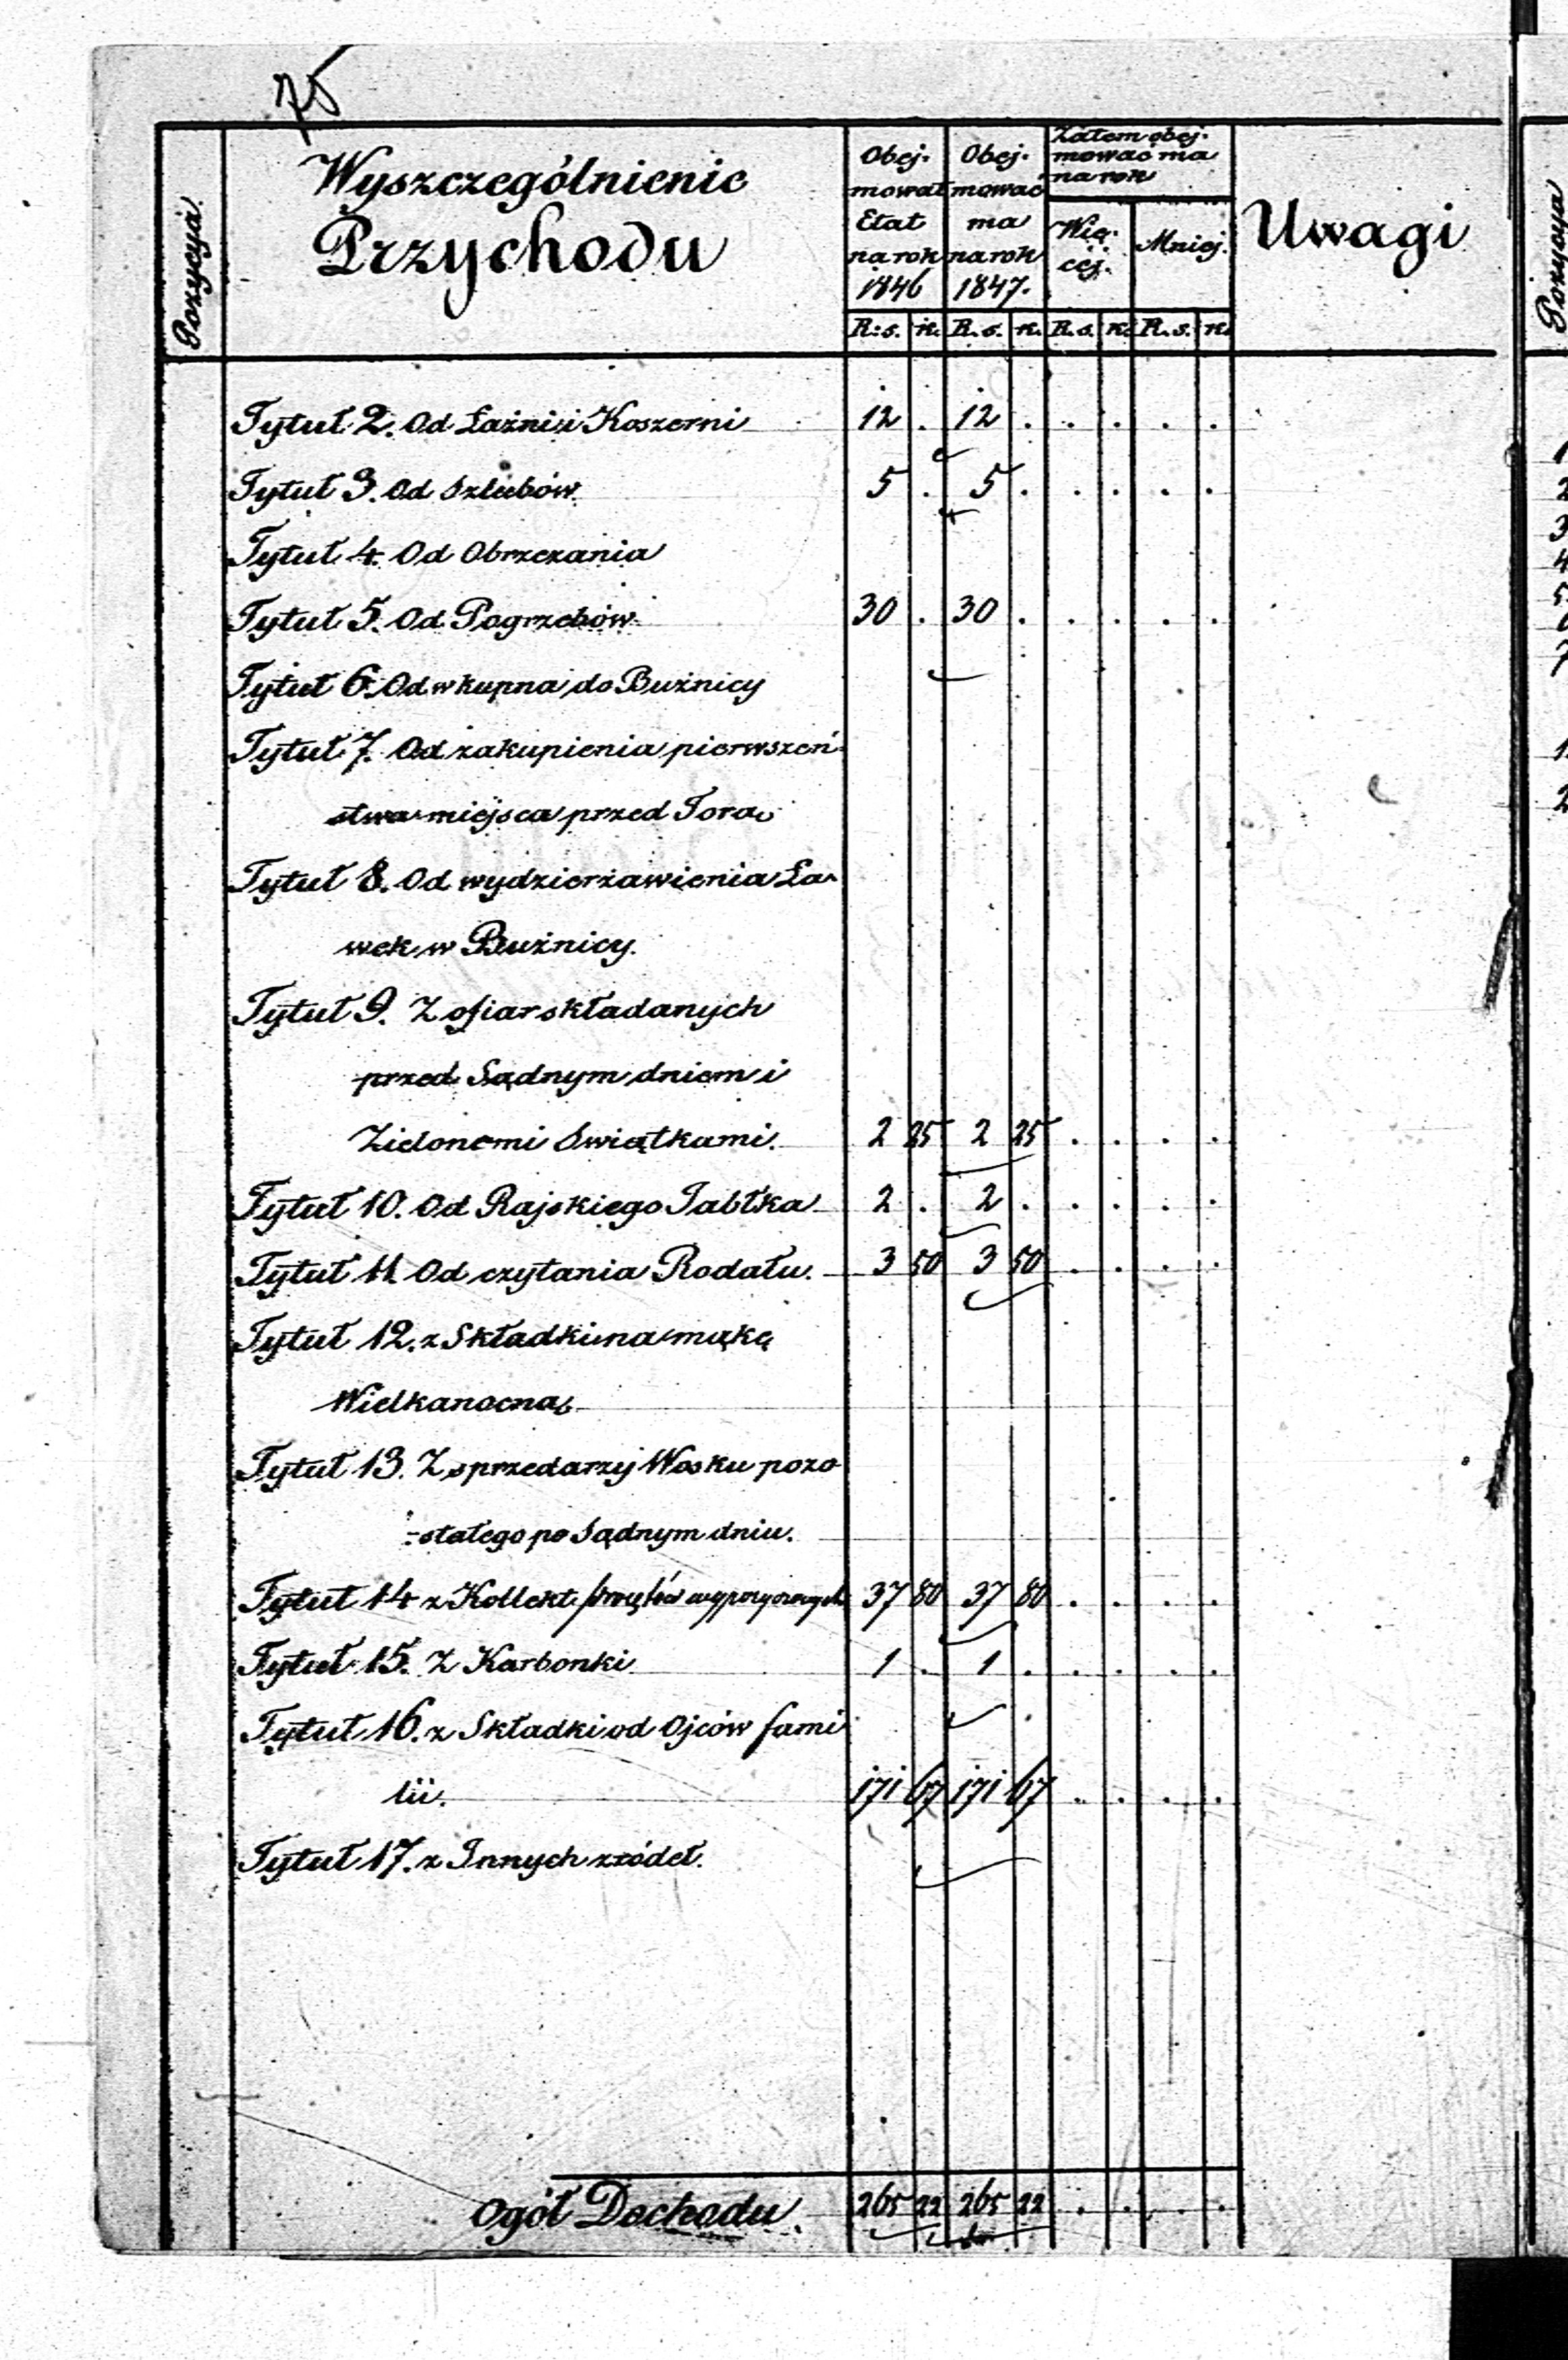 75
Pozycyja.
Wyszczególnienie
Przychodu
Obej-
mował
Etat
na rok
1846
Obej-
mować
ma
na rok
1847.
Zatem obej-
mować ma
na rok
Wię-
céj.
Mniej.
Uwagi
R: s. k. R. s. k. R. s. k. R. s. k.
Tytuł 2. Od Łaźni i Koszerni 12 . 12 . . . . .
Tytuł 3. Od Szlubów. 5 . 5 . . . . .
Tytuł 4. Od Obrzezania
Tytuł 5. Od Pogrzebów 30 . 30 . . . . .
Tytuł 6. Od wkupna do Bużnicy
Tytuł 7. Od zakupienia pierwszeń-
stwa miejsca przed Torą
Tytuł 8. Od wydzierżawienia Ła-
wek w Bużnicy.
Tytuł 9. Z ofiar składanych
przed Sądnym dniem i
Zielonemi Swiątkami. 2 25 2 25 . . . .
Tytuł 10. Od Rajskiego Jabłka 2 . 2 . . . . .
Tytuł 11. Od czytania Rodału. 3 50 3 50 . . . .
Tytuł 12. z Składki na mąkę
Wielkanocną
Tytuł 13. Z sprzedarzy Wosku pozo
-stałego po Sądnym dniu.
Tytuł 14 z Kollekt 37 80 37 80 . . . .
Tytuł 15. Z Karbonki 1 . 1 . . . . .
Tytuł 16. z Składki od Ojców fami
lii. 171 67 171 67 . . . .
Tytuł 17. z Innych zródeł.
Ogół Dochodu. 265 22 265 22 . . . .
Pozycya
1
2
3
4
5
6
7
1
2